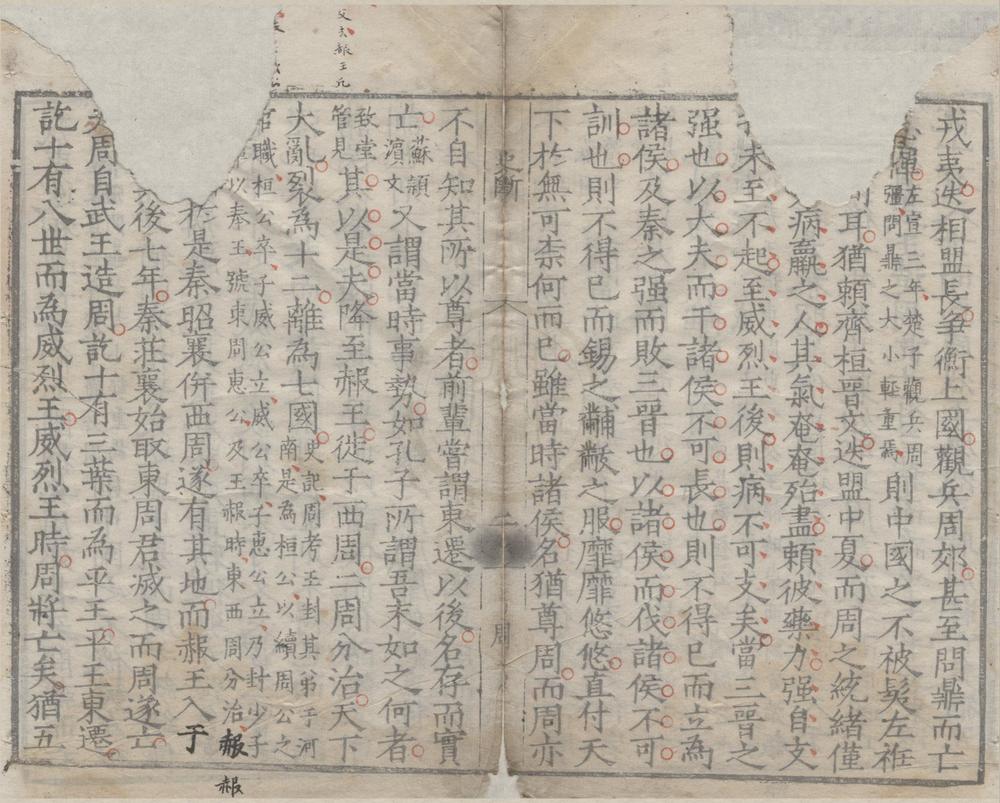 戎夷迭相盟長爭衡上國觀兵周郊甚至問鼎而亡
憚左宣三年楚子觀兵周
彊問鼎之大小輕重焉則中國之不被髮左衽
耳猶賴齊桓晉文迭盟中夏而周之統緒僅
病羸之人其氣奄奄殆盡賴彼藥力强自支
未至不起至威烈王後則病不可支矣當三晉之
强也以大夫而干諸侯不可長也則不得已而立為
諸侯及秦之强而敗三晉也以諸侯而伐諸侯不可
訓也則不得已而錫之黼黻之服靡靡悠悠直付天
下於無可柰何而已雖當時諸侯名猶尊周而周亦
史斷 二 周
不自知其所以尊者前輩嘗謂東遷以後名存而實
亡蘇潁
濱文又謂當時事勢如孔子所謂吾末如之何者
致堂
管見其以是夫降至赧王徙于西周二周分治天下
大亂裂為十二離為七國史記周考王封其弟于河
南是為桓公以續周公之
官職桓公卒子威公立威公卒子惠公立乃封少子
以奉王號東周惠公及王赧時東西周分治
赧
於是秦昭襄併西周遂有其地而赧王入于
後七年秦莊襄始取東周君滅之而周遂亡
夫周自武王造周訖十有三葉而為平王平王東遷
訖十有八世而為威烈王威烈王時周將亡矣猶五